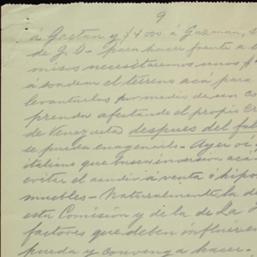 9
á Gaetan y $4000 á Guzman,
de J. D. - para hacer frente a
misos necesitaremos unos
á sondear el terreno acá para
levantarlos por medio de un
prenda afectando el propio
de Venezuela despues del
se pueda enagenarlo. Ayer
italino que busca inversion acá
evitar el acudir á venta é hipo
muebles - Naturalmente la
esta Comisión y de la de La
factores que deben influir en
pueda y convenga hacer.